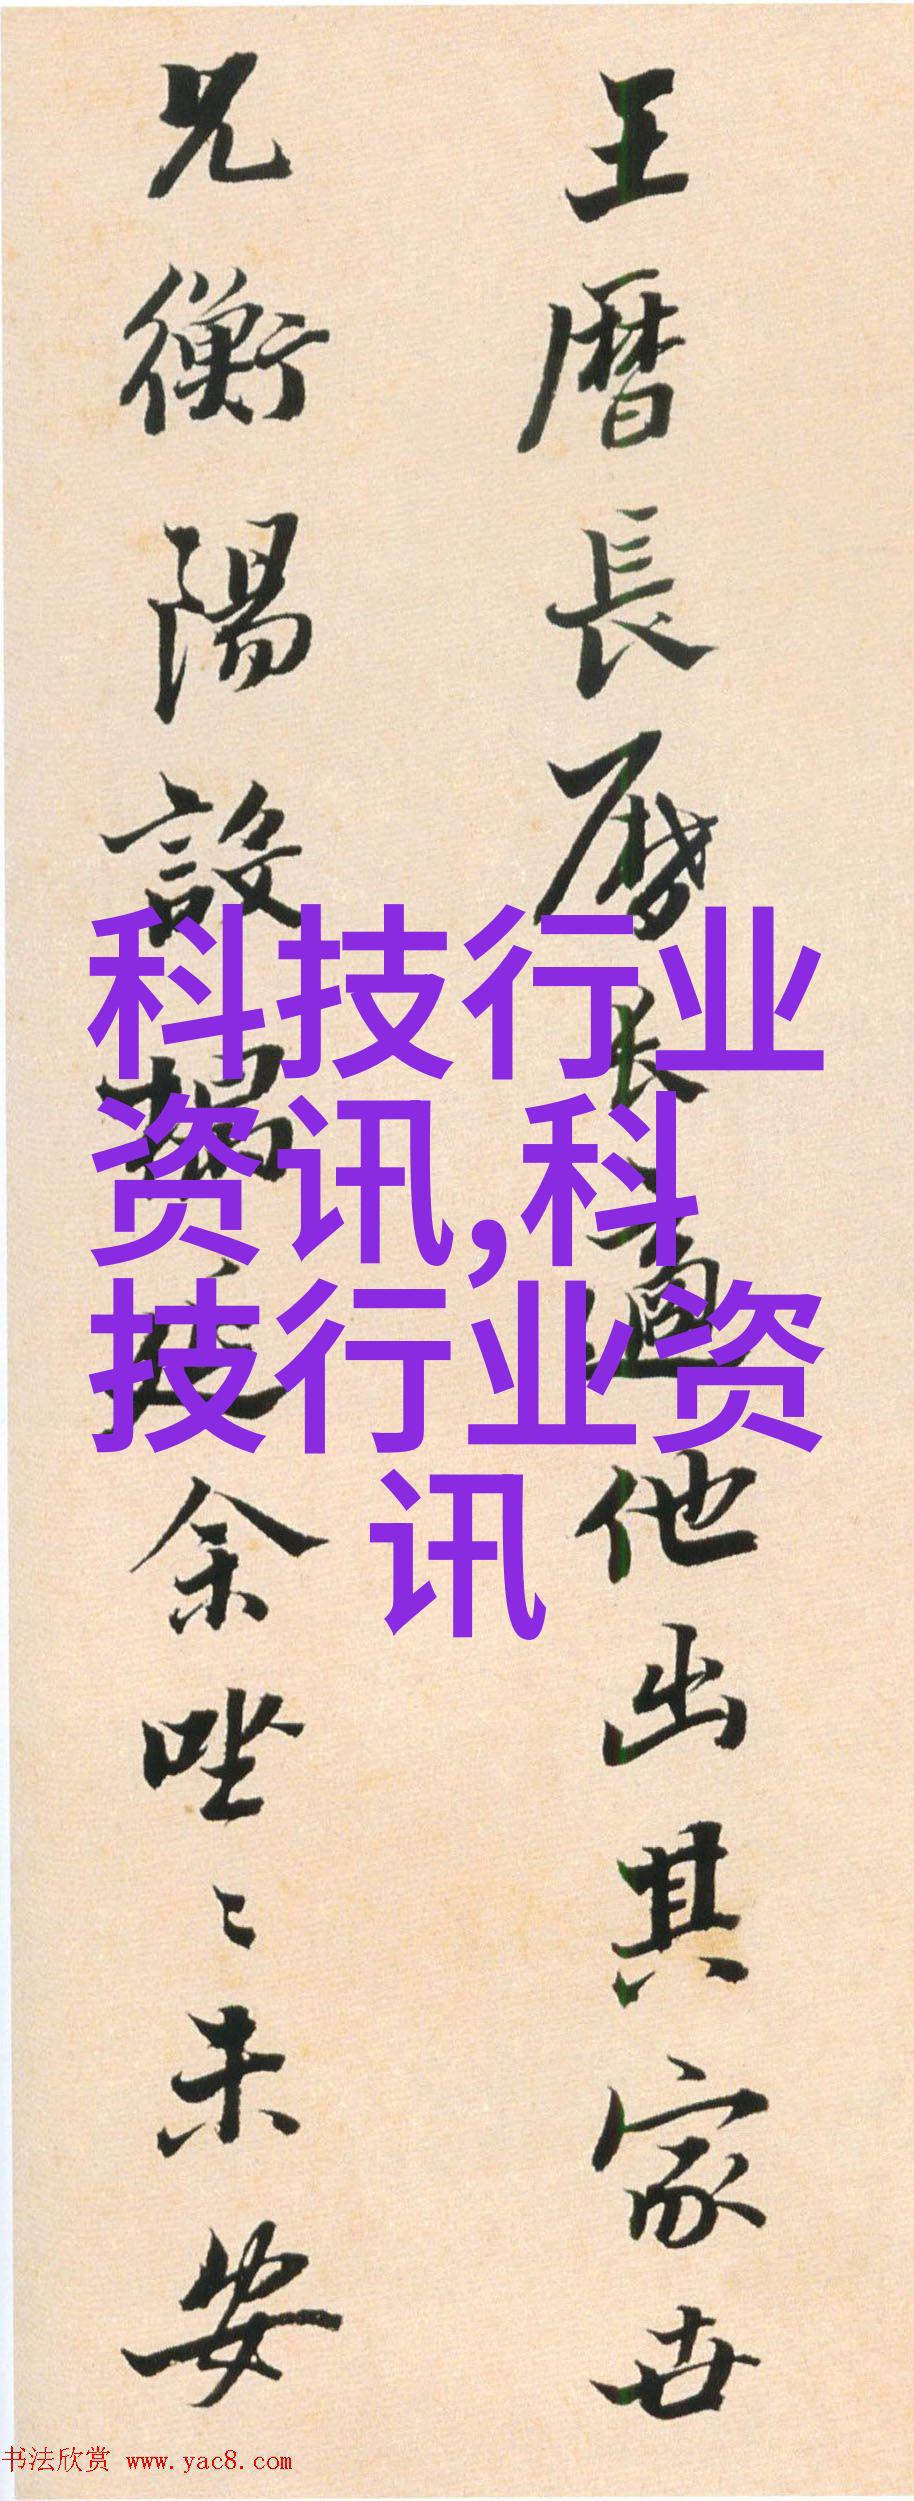 王曆長曆長適他出其家世
兄衡陽設榻延余唑〻未安
科技行业
资讯,科
技行业资
讯
书法欣赏 www.yac8.com